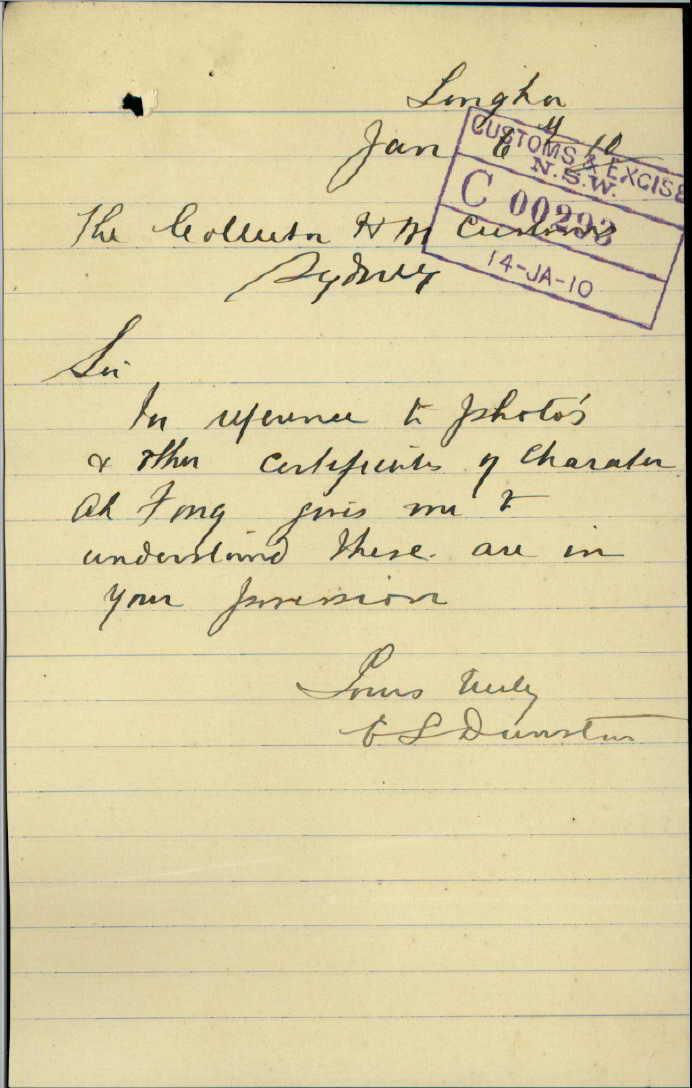 Jan
CUSTOMS & EXCISE
N.S.W.
C 00293
14-JA-10
The Collector H M Customs
Sydney
Sir
In reference to photo's
& other certificates of Charater
Ah Fong gives me to
understand these are in
your possession
Yours truly
Dunstan